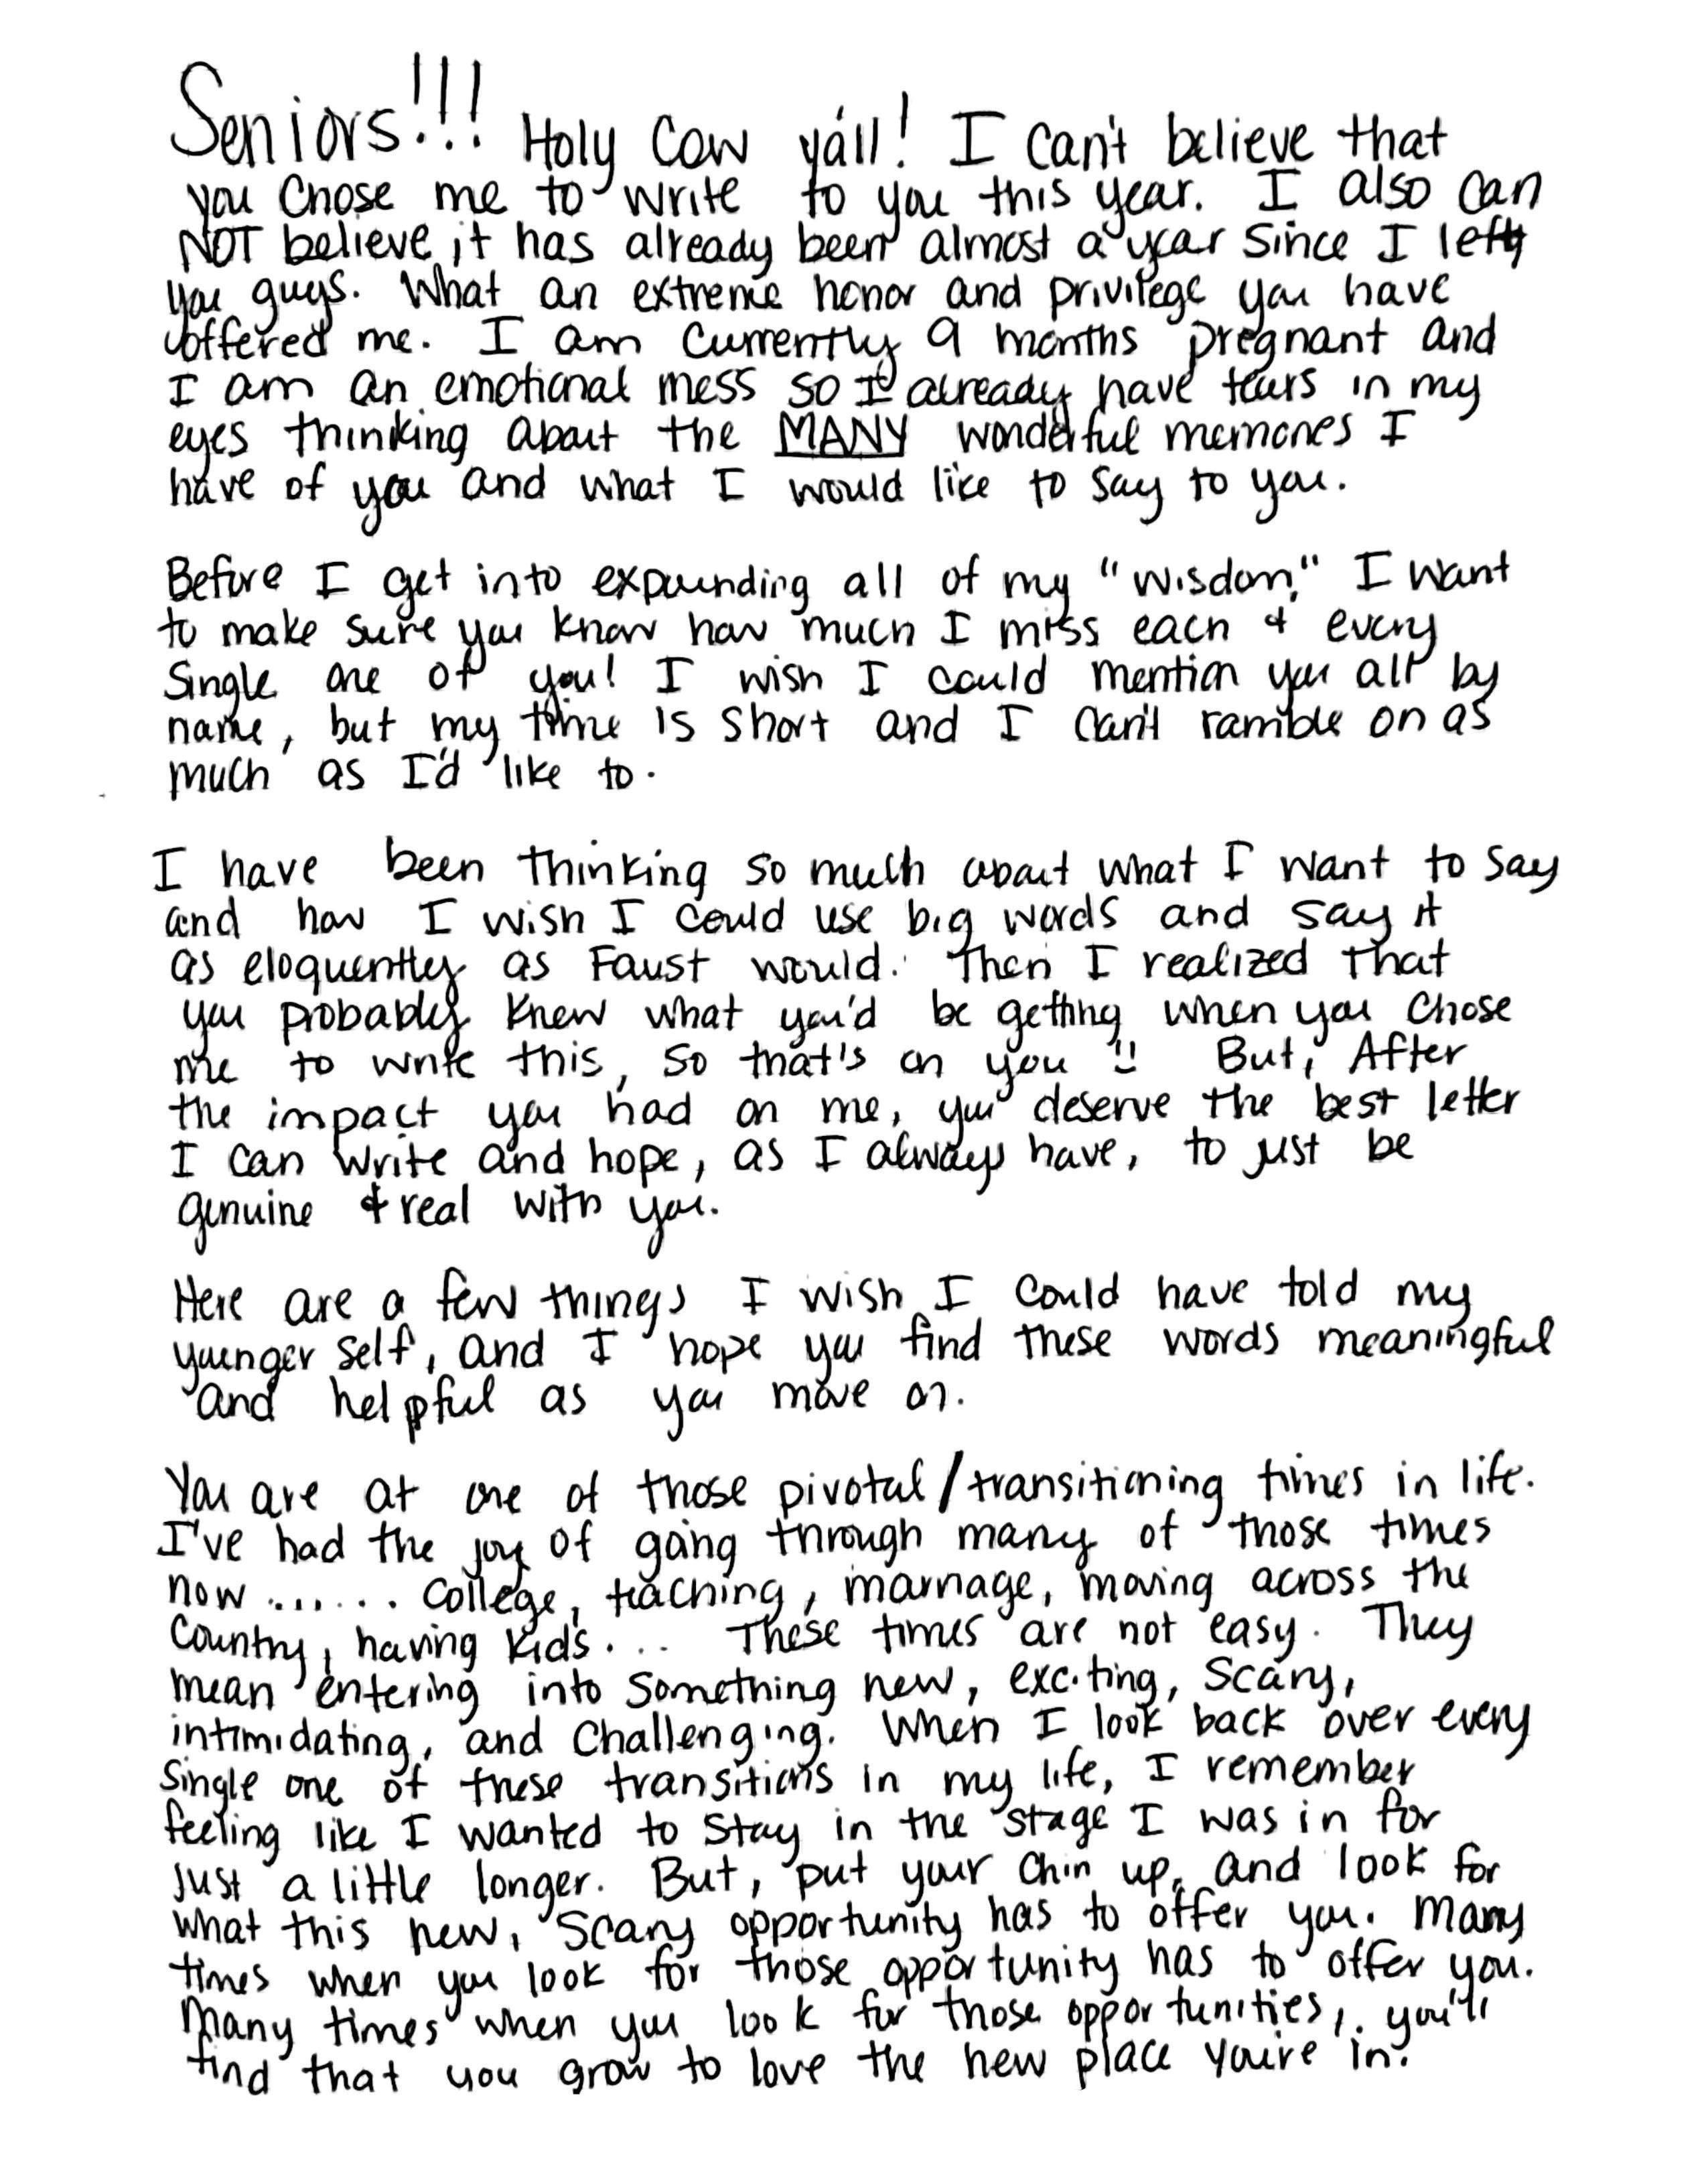 Seniors!!! Holy Cow y'all! I can't believe that
you chose me to write to you this year. I also can
NOT believe it has already been almost a year since I left
you guys. What an extreme honor and privilege you have
offered me. I am currently 9 months pregnant and
I am an emotional mess so I already have tears in my
eyes thinking about the MANY wonderful memories I
have of you and what I would like to say to you.
Before I get into expounding all of my "wisdom," I want
to make sure you know how much I miss each & every
single one of you! I wish I could mention you all by
name, but my time is short and I can't ramble on as
much as I'd like to.
I have been thinking so much about what I want to say
and how I wish I could use big words and say it
as eloquently as Faust would. Then I realized that
you probably knew what you'd be getting when you chose
me to write this, so that's on you !! But, After
the impact you had on me, you deserve the best letter
I can write and hope, as I always have, to just be
genuine & real with you.
Here are a few things I wish I could have told my
younger self, and I hope you find these words meaningful
and helpful as you move on.
You are at one of those pivotal/transitioning times in life.
I've had the joy of going through many of those times
now ...... college, teaching, marriage, moving across the
country, having kids.... These times are not easy. They
mean entering into something new, exciting, scary,
intimidating, and challenging. When I look back over every
single one of these transitions in my life, I remember
feeling like I wanted to stay in the stage I was in for
just a little longer. But, put your chin up, and look for
what this new, scary opportunity has to offer you. Many
times when you look for those opportunity has to offer you.
Many times when you look for those opportunities, you'll
find that you grow to love the new place you're in.